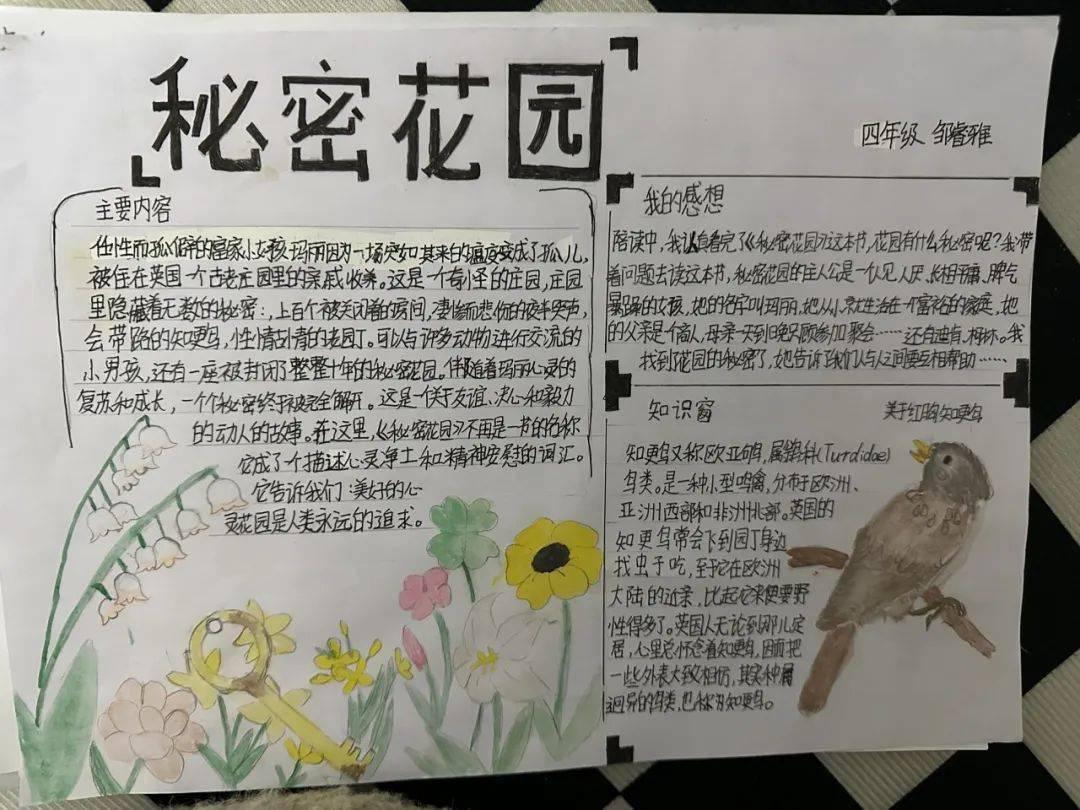 秘密花园
四年级 邹睿雅
主要内容
任性而孤僻的富家小女孩玛丽因为一场突如其来的瘟疫变成了孤儿，
被住在英国一个古老庄园里的亲戚收养。这是一个奇怪的庄园，庄园
里隐藏着无数的秘密：，上百个被关闭着的房间，凄惨而悲伤的夜半哭声，
会带路的知更鸟，性情古怪的老园丁。可以与许多动物进行交流的
小男孩，还有一座被封闭了整整十年的秘密花园。伴随着玛丽心灵的
复苏和成长，一个个秘密终于被完全解开。这是一个关于友谊、决心和毅力
的动人的故事。在这里，《秘密花园》不再是一书的名称
它成了个描述心灵净土和精神安慰的词汇。
它告诉我们：美好的心
灵花园是人类永远的追求。
我的感想
陪读中，我认真看完了《秘密花园》这本书，花园有什么秘密呢？我带
着问题去读这本书，秘密花园的主人公是一个人见人厌、长相平庸、脾气
暴躁的女孩，她的名字叫玛丽，她从小就生活在一个富裕的家庭，她
的父亲是个商人，母亲一天到晚只顾参加聚会……还有迪肯、柯林。我
找到花园的秘密了，她告诉我们人与人之间要互相帮助……
知识窗
关于红胸知更鸟
知更鸟又称欧亚鸲，属鸫科(Turdidae)
鸟类。是一种小型鸣禽，分布于欧洲、
亚洲西部和非洲北部。英国的
知更鸟常会飞到园丁身边
找虫子吃，至于它在欧洲
大陆的近亲，比起它来便要野
性得多了。英国人无论到哪儿定
居，心里总怀念着知更鸟，因而把
一些外表大致相仿，其实种属
迥异的鸟类，也称为知更鸟。